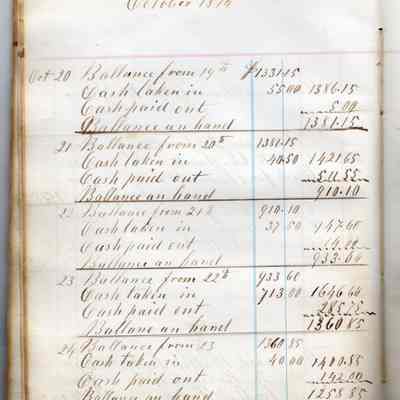 October 18
Oct 20 Ballance from 19th $1331.15
Cash taken in 55.00 1386.15
Cash paid out 5.00
Ballance on hand 1381.15
21 Ballance from 20th 1381.15
Cash taken in 40.50 1421.65
Cash paid out 511.55
Ballance on hand 910.10
22 Ballance from 21st 910.10
Cash taken in 37.50 947.60
Cash paid out
Ballance on hand 933.60
23 Ballance from 22th 933 60
Cash taken in 713.00 1646 60
Cash paid out 285.75
Ballanc on hand 1360.85
24 Ballance from 23 1360.85
Cash taken in 40.00 1400.85
Cash paid out 142.00
Ballance on hand 1258 85